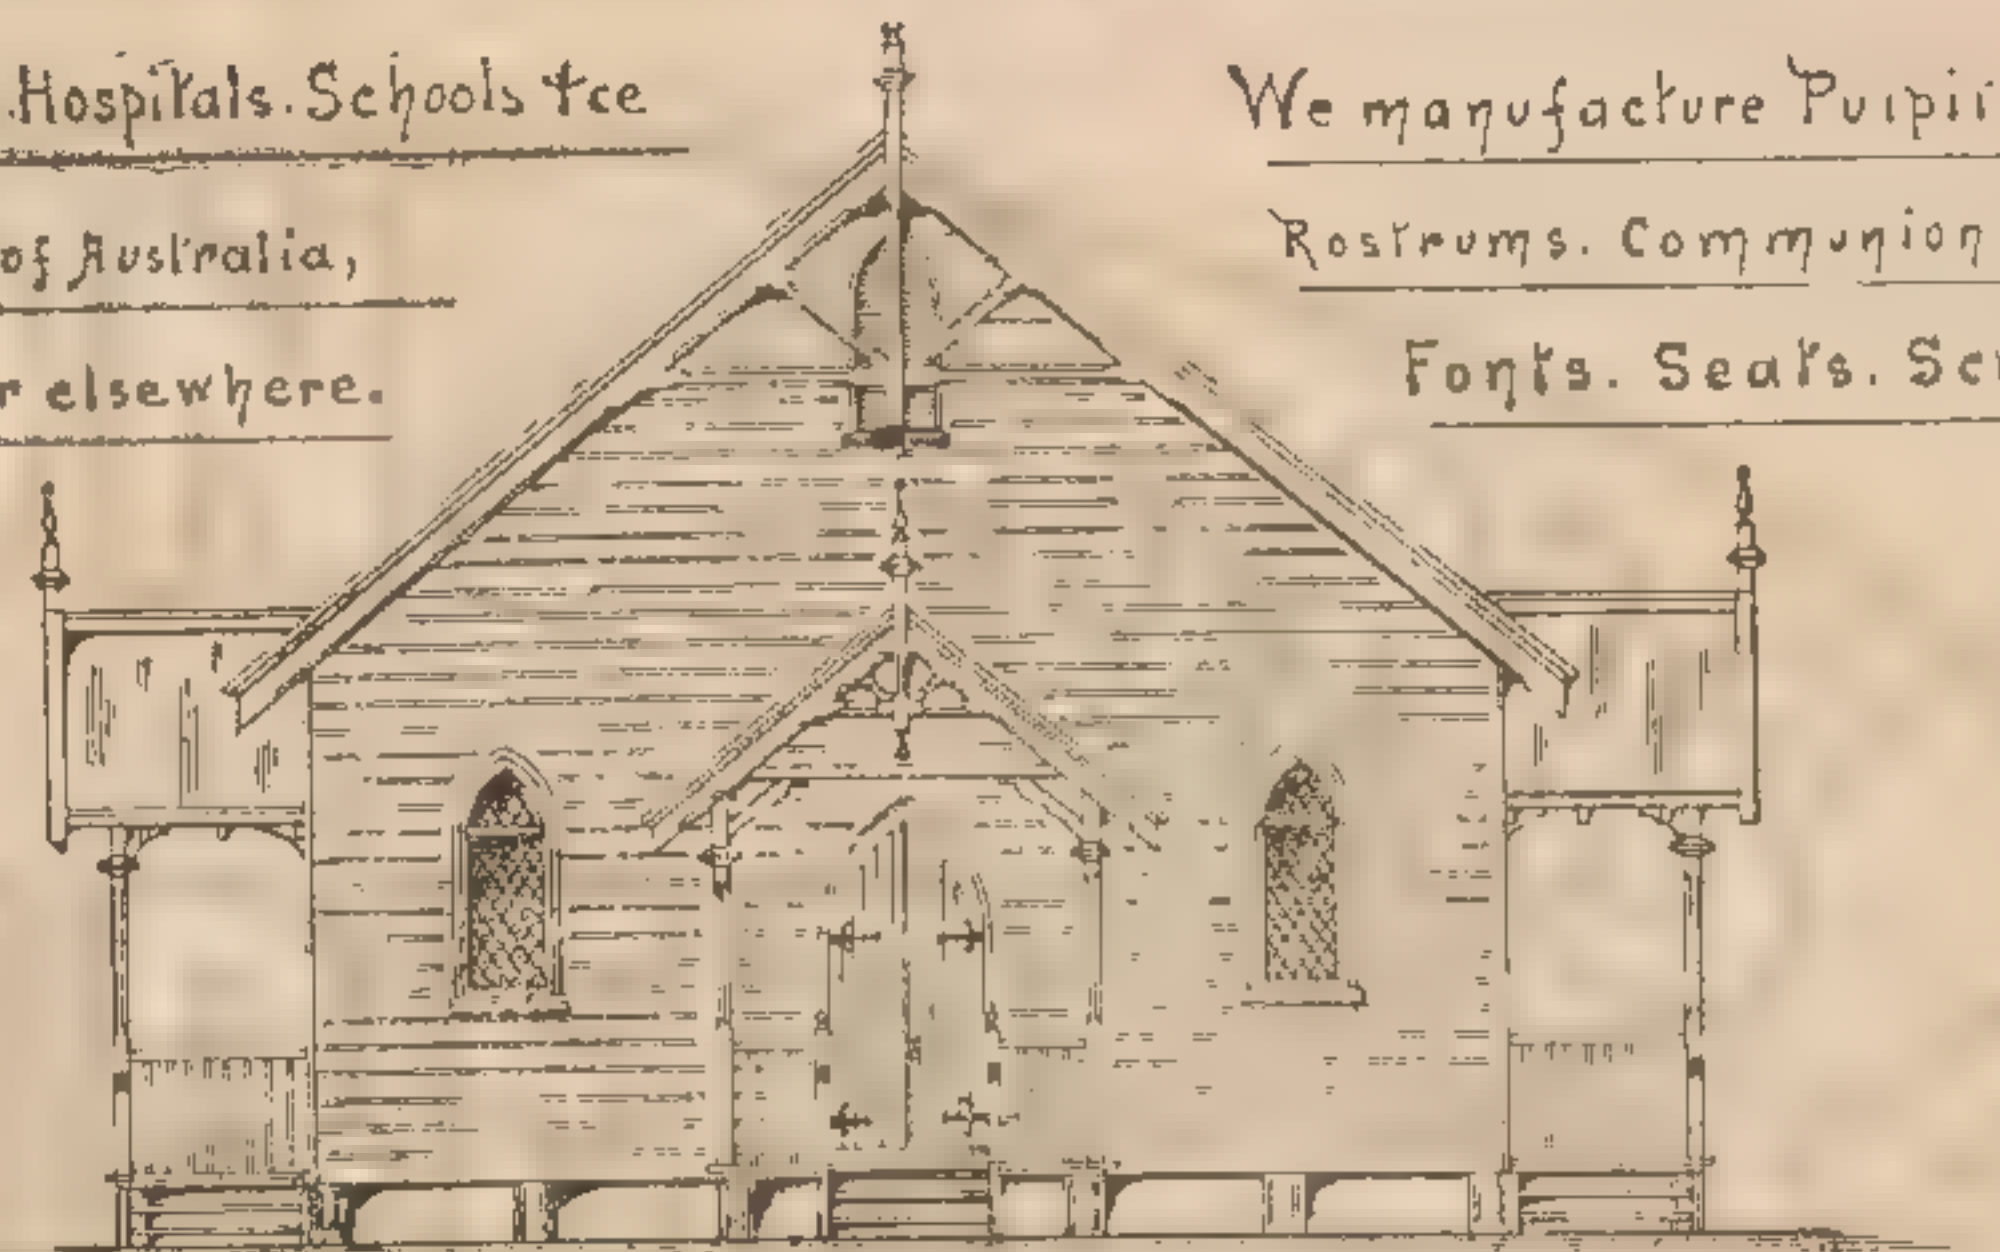 . Hospitals. Schools &ce
of Australia,
r elsewhere.
We manufacture Pulpit
Rostrums. Communion
Fonts. Seats. Scr